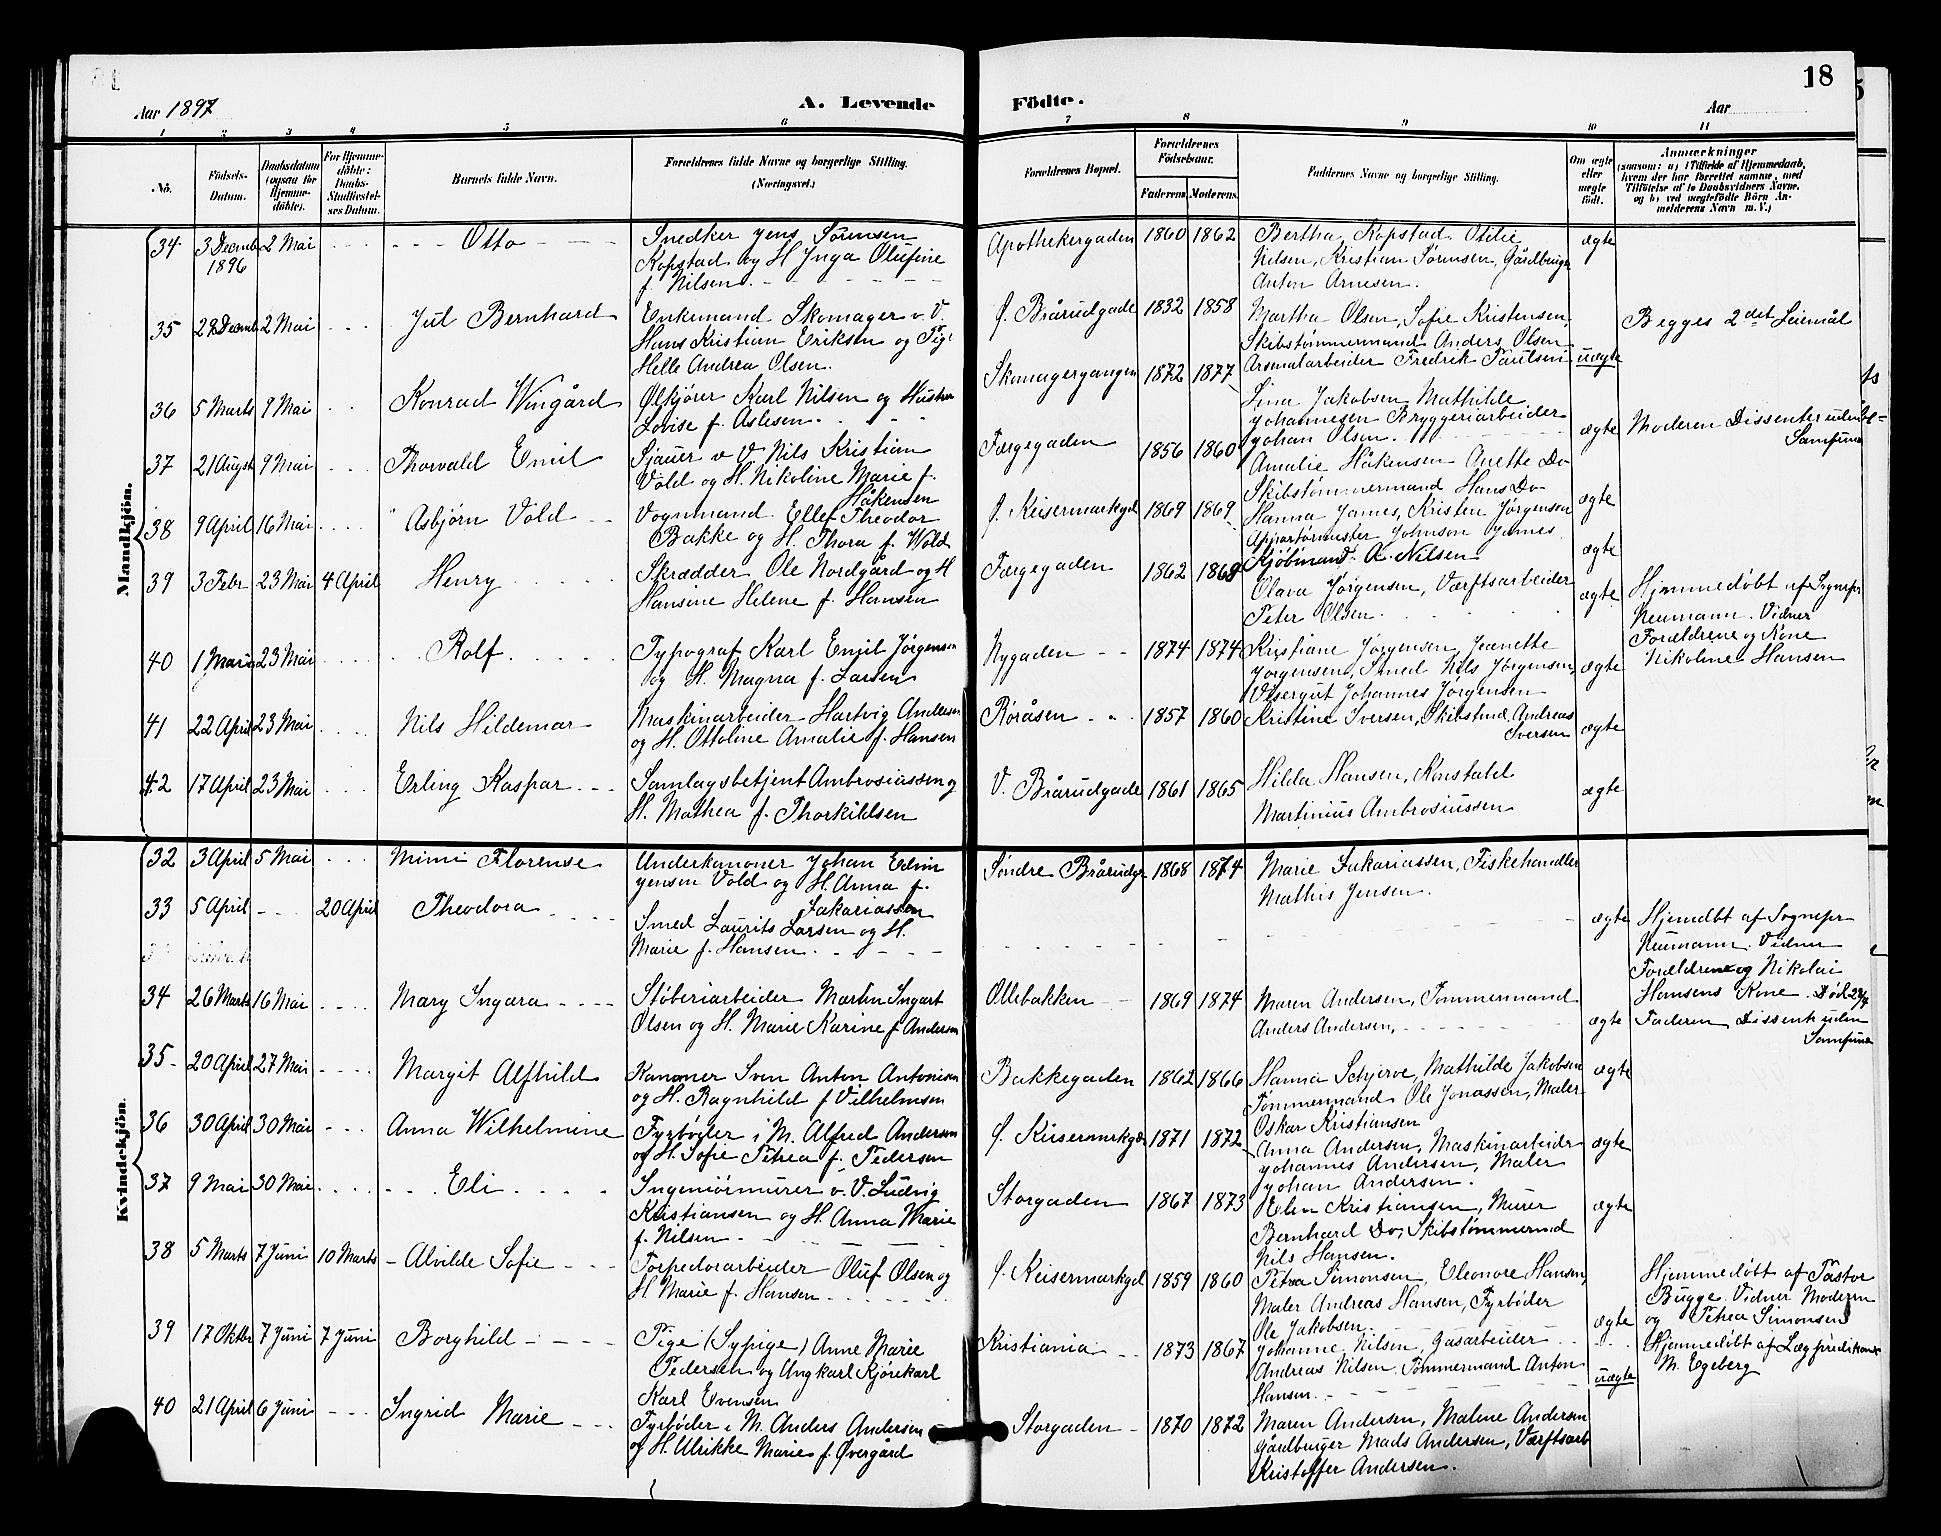 18
Aar 1897
A. Levende
Födte.
Aar
1 2 3 4 5 6 7 8 9 10 11
No.
Födsels-Datum.
Daabsdatum (ogsaa for Hjemme-döbte).
For Hjemme-döbte: Daabs-Stadfæstel-ses Datum.
Barnets fulde Navn.
Forældrenes fulde Navne og borgerlige Stilling.
(Næringsvei.)
Forældrenes Bopæl.
Forældrenes Födselsaar.
Faderens. Moderens.
Faddernes Navne og borgerlige Stilling.
Om ægte eller uægte födt.
Anmærkninger
(saasom: a) i Tilfælde af Hjemmedaab, hvem der har forrettet samme, med Tilföielse af to Daabsvidners Navne, og b) ved uægtefödte Börn An-melderens Navn m. V.)
Mandkjön.
34 3 Decmb 1896 2 Mai Otto Snedker Jens Sørensen
Kopstad og H Inga Olufine
f. Nilsen. Apothekergaden 1860 1862 Bertha Kopstad Otilie
Nilsen, Kristian Sørensen, Gårdbruger
Anton Arnesen. ægte
35 28 Decmb 2 Mai Jul Bernhard Enkemand Skomager v. V.
Hans Kristian Eriksen og Pige
Helle Andrea Olsen. Ø. Brårudgade 1832 1858 Martha Olsen, Sofie Kristensen,
Skibstømmermand Anders Olsen
Arsenalarbeider Fredrik Paulsen uægte Begges 2det Leiemål
36 5 Marts 9 Mai Konrad Wingård Ølkjører Karl Nilsen og Hustru
Lovise f. Aslesen. Skomagergangen 1872 1877 Lina Jakobsen Mathilde
Johannesen Bryggeriarbeider
Johan Olsen. ægte Moderen Dissenter uden
Samfund
37 21 Augst 9 Mai Thorvald Emil Sjauer v V Nils Kristian
Vold og H. Nikoline Marie f.
Håkensen Færgegaden 1856 1860 Amalie Håkensen Anette Do
Skibstømmermand Hans Do ægte
38 9 April 16 Mai Asbjørn Vold Vognmand Ellef Theodor
Bakke og H. Thora f. Wold Ø. Keisermarkgd 1869 1869 Hanna James, Kristen Jørgensen
Johnson James
Kjøbmand A. Nilsen ægte
39 3 Febr 23 Mai 4 April Henry Skrædder Ole Nordgård og H
Hansine Helene f. Hansen Færgegaden 1862 1868 Olava Jørgensen, Værftsarbeider
Peter Olsen ægte Hjemmedøbt af Sognepr
Neumann. Vidner
Forældrene og Kone
Nikoline Hansen
40 1 Marts 23 Mai Rolf Typograf Karl Emil Jørgensen
og H. Magna f. Larsen Nygaden 1874 1874 Kristiane Jørgensen Jeanette
Jørgensen, Smed Nils Jørgensen,
Visergut Johannes Jørgensen ægte
41 22 April 23 Mai Nils Hildemar Maskinarbeider Hartvig Andersen
og H. Ottoline Amalie f. Hansen Røråsen 1857 1860 Kristine Iversen, Skibstmd. Andreas
Iversen ægte
42 17 April 23 Mai Erling Kaspar Samlagsbetjent Ambrosiussen og
H. Mathea f. Thorkildsen V. Brårudgade 1861 1865 Hilda Hansen, Konstabel
Martinius Ambrosiussen ægte
Kvindekjön.
32 3 April 5 Mai Mimi Florense Underkanoner Johan Edvin
Jensen Vold og H. Anna f.
Sakariassen Søndre Brårudgt 1868 1874 Marie Sakariassen, Fiskehandler
Mathis Jensen.
33 5 April 20 April Theodora Smed Laurits Larsen og H.
Marie f. Hansen. ægte Hjemdbt af Sognepr
Neumann. Vidner
Forældrene og Nikolai
Hansens Kone. Død 28/4
34 26 Marts 16 Mai Mary Ingara Støberiarbeider Martin Ingart
Olsen og H. Marie Karine f. Andersen Ollebakken 1869 1874 Maren Andersen, Tommermand
Anders Andersen, ægte Faderen Dissentr uden
Samfund
35 20 April 27 Mai Margit Alfhild Kanoner Sven Anton Antonisen
og H. Ragnhild f Vilhelmsen Bakkegaden 1862 1866 Hanna Schjerve, Mathilde Jakobsen
Tømmermand Ole Jonassen, Maler
Oskar Kristiansen ægte
36 30 April 30 Mai Anna Wilhelmine Fyrbøder i M. Alfred Andersen
og H. Sofie Petrea f. Pedersen Ø. Keisermarkgd 1871 1872 Anna Andersen, Maskinarbeidr
Johannes Andersen, Maler
Johan Andersen. ægte
37 9 Mai 30 Mai Eli Ingeniørmurer v. V. Ludvig
Kristiansen og H. Anna Marie
f. Nilsen Storgaden 1867 1873 Elen Kristiansen, Murer
Bernhard Do, Skibstømmermd
Nils Hansen. ægte
38 5 Marts 7 Juni 10 Marts Alvilde Sofie Torpedoarbeider Oluf Olsen og
H. Marie f. Hansen Ø. Keisermarkgd 1859 1860 Petra Simonsen, Eleonore Hansen,
Maler Andreas Hansen, Fyrbøder
Ole Jakobsen. ægte Hjemmedøbt af Pastor
Bugge. Vidner Moderen
og Petrea Simonsen
39 17 Oktbr 7 Juni 7 Juni Borghild Pige (Sypige) Anne Marie
Pedersen og Ungkarl Kjørekarl
Karl Evensen Kristiania 1873 1867 Johanne Nilsen, Gasarbeider
Andreas Nilsen Tømmermand Anton
Hansen. uægte Hjemmedøbt af Lægprædikant
M. Egeberg
40 21 April 6 Juni Ingrid Marie Fyrbøder i M. Anders Andersen
og H. Ulrikke Marie f. Øvergård Storgaden 1870 1872 Maren Andersen, Malene Andersen
Gårdbruger Mads Andersen, Værftsarb
Kristoffer Andersen.